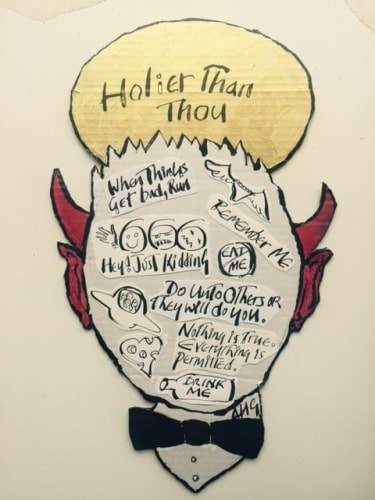 Holier Than
Thou
When Things
Get bad, Run
Remember Me
Hey! Just Kidding
EAT
ME
Do Unto Others or
They will do you.
Nothing is True.
Everything is
Permitted.
DRINK
ME